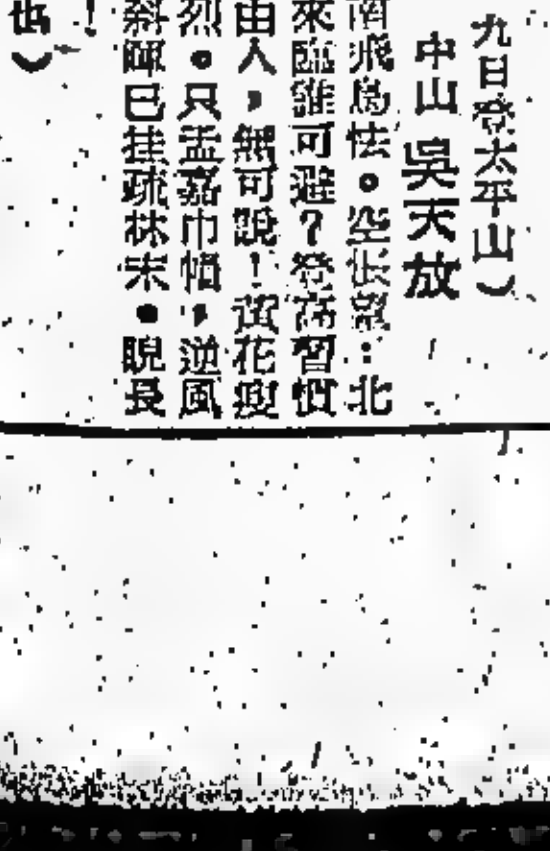 九日登太平山）
中山　吳天放
南飛鳥怯。空悵望：北
來臨誰可避？登高習慣
由人，無可說！黃花瘦
烈。只孟嘉巾幘，逆風
斜暉已挂疏林末。睨長
！
也）